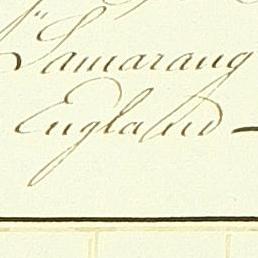 "Samarang
England —